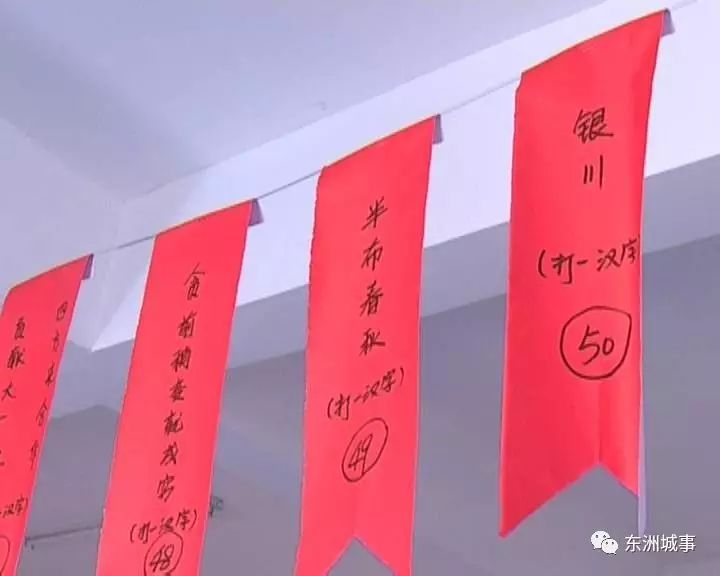 四方来合作
贡献大一
一汉字)
食前 查就成
(打一汉字)
48
半布春秋
(打一汉字)
49
银川
(打一汉字)
50
东洲城事